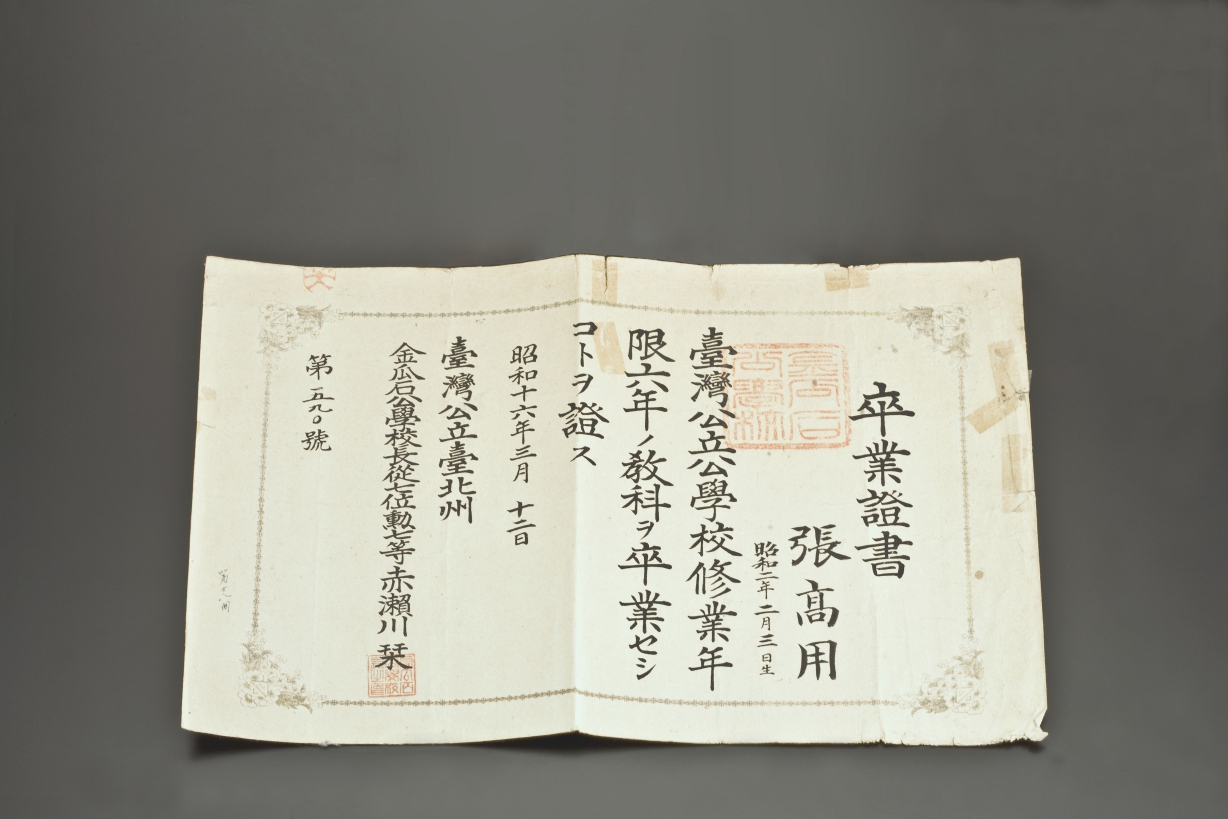 卒業證書
張高用
昭和二年二月三日生
臺灣公立公學校修業年
限六年ノ教科ヲ卒業セシ
コトヲ證ス
昭和十六年三月十二日
臺灣公立臺北州
金瓜石公學校長從七位勳七等赤瀬川栞
第一五九〇號